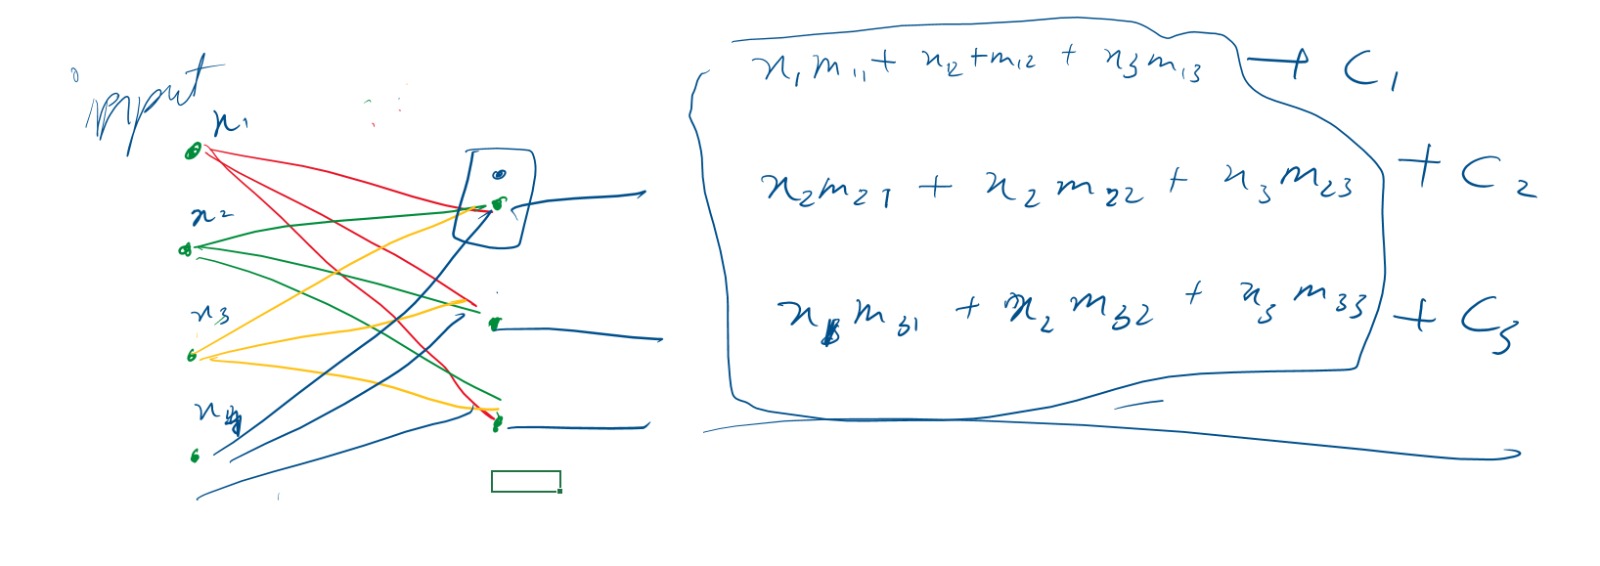 input
x₁
x₂
x₃
x₄
x₁m₁₁ + x₁₂ + m₁₂ + x₃m₁₃ + C₁
x₂m₂₁ + x₂m₂₂ + x₃m₂₃ + C₂
m₃₁ + x₂m₃₂ + x₃m₃₃ + C₃